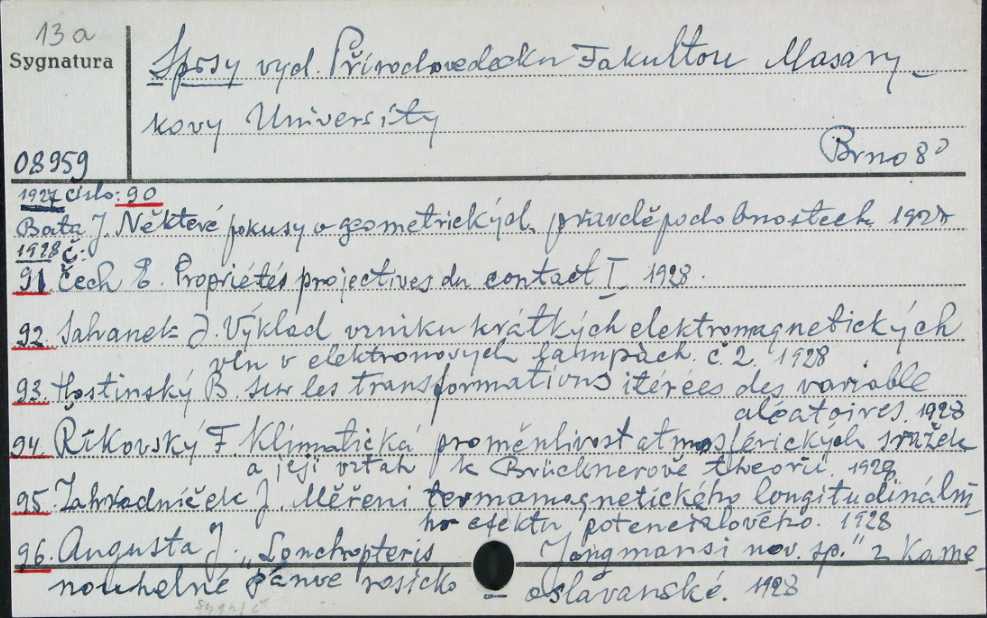 13 a
Sygnatura
Spisy vyd. Přírodovedeckou Fakultou Masary-
kovy University
Brno 8°
08959
1927 číslo: 90
Bata J. Některé pokusy o geometrických pravděpodobnostech 1927
1928 č:
91. Čech E. Propriétés projectives du contact I 1928.
92. Sahanek J. Výklad vzniku krátkých elektromagnetických
vln v elektronových lampách. č. 2. 1928
93. Hostinský B. sur les transformations itérées des variable
aléatoires. 1928
94. Říkovský F. Klimatická proměnlivost atmosférických srážek
a její vztah k Brücknerově theorii. 1928
95. Zahradníček J. Měřeni termomagnetického longitudinální-
ho efektu potencialového. 1928
96. Augusta J. "Lonchopteris Jongmansi nov. sp." z Kame
nouhelné pánve rosicko - oslavanské. 1928